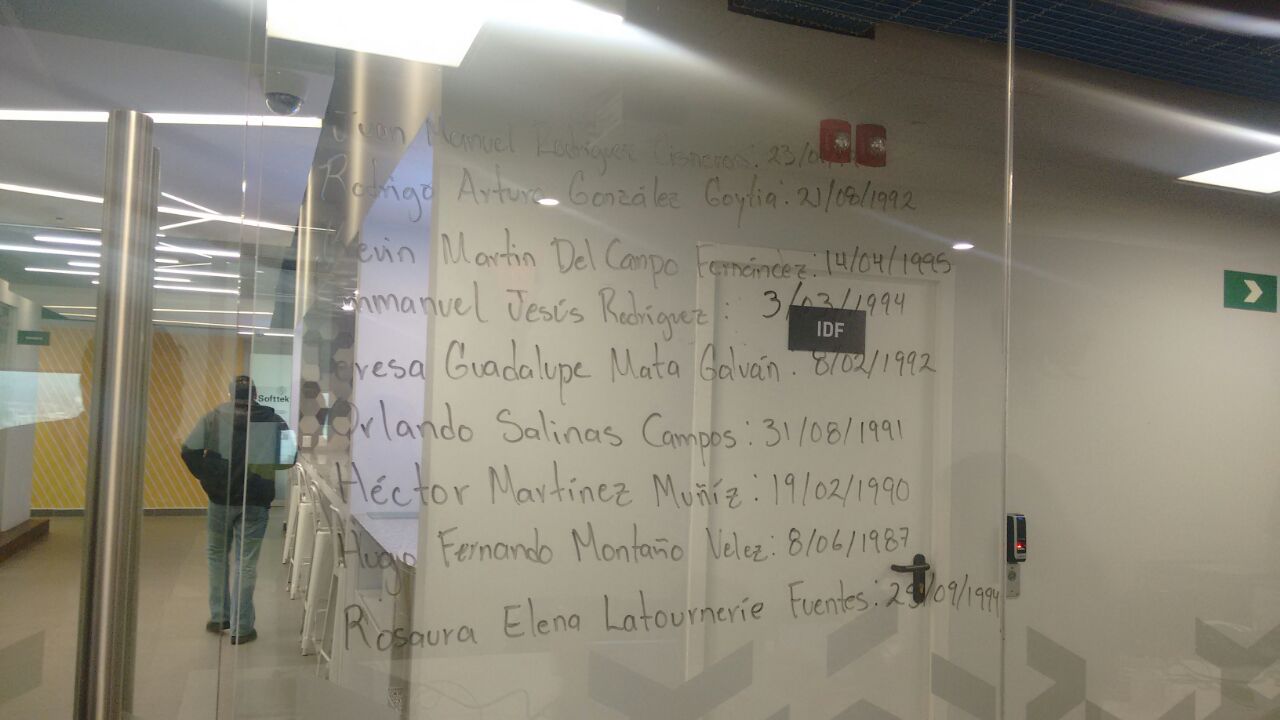 Juan Manuel Rodríguez Cisneros: 23/0
Rodrigo Arturo González Goytia: 21/08/1992
Kevin Martin Del Campo Fernández: 14/04/1995
mmanuel Jesús Rodríguez: 3/03/1994
IDF
eresa Guadalupe Mata Galván. 8/02/1992
Softtek
Orlando Salinas Campos: 31/08/1991
Héctor Martínez Muñíz: 19/02/1990
Hugo Fernando Montaño Velez: 8/06/1987
Rosaura Elena Latournerie Fuentes: